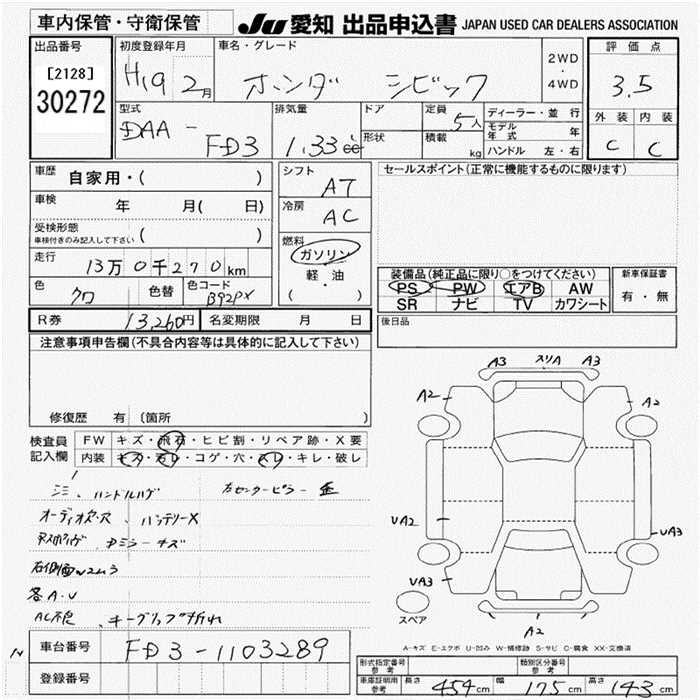 車内保管・守衛保管
JU 愛知 出品申込書 JAPAN USED CAR DEALERS ASSOCIATION
出品番号
[2128]
30272
初度登録年月 H19 2月
車名・グレード ホンダ シビック
2WD・4WD
評価点 3.5
外装 内装
C C
型式 DAA-FD3
排気量 1.33 cc
ドア
形状
定員 5人
積載 kg
ディーラー・並行
モデル年式 年
ハンドル 左・右
車歴 自家用・( )
車検 年 月( 日)
受検形態
車検付きのみ記入して下さい ( )
走行 13万0千270km
色 クロ 色替 色コード B92PX
シフト AT
冷房 AC
燃料 ガソリン
軽・油
( )
セールスポイント(正常に機能するものに限ります)
装備品(純正品に限り○をつけてください)
PS PW エアB AW
SR ナビ TV カワシート
新車保証書
有・無
R券 13,260円 名変期限 月 日
後日品
注意事項申告欄(不具合内容等は具体的に記入して下さい)
修復歴 有 〔箇所 〕
検査員記入欄
FW キズ・飛石・ヒビ割・リペア跡・X要
内装 キズ・汚レ・コゲ・穴・スレ・キレ・破レ
ハンドルハゲ
バッテリーX
各A・U
キーグリップ折れ
A3 スリA A3
A2 A2
UA2 UA3
UA3
A2
スペア
A-キズ E-エクボ U-凹み W-補修跡 S-サビ C-腐食 XX-交換済
車台番号 FD3-1103289
登録番号
形式指定番号 参考
類別区分番号 参考
車庫証明用 参考 長さ 454cm 幅 175cm 高さ 143cm